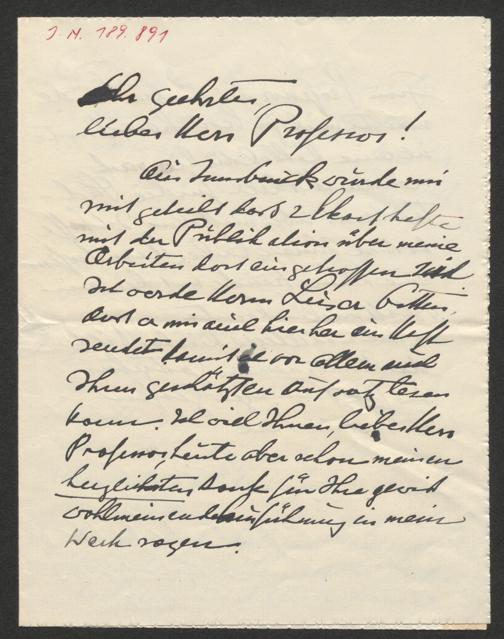 J. N. 189.891
Sehr geehrter,
lieber Herr Professor!
Aus Innsbruck wurde mir
mitgeteilt dass 2 hefte
mit der Publikation über meine
Arbeiten dort eingetroffen sind
Ich werde Herrn bitten,
dass er mir hierher ein Heft
sendet damit ich vor allem
Ihren geschätzten Aufsatz lesen
kann. Ich will Ihnen, lieber Herr
Professor, heute aber schon meinen
herzlichsten Dank für Ihre gewiss
wohlmeinende Einführung in mein
Werk sagen.